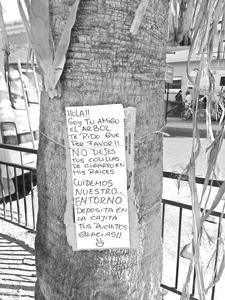 HOLA!!
SOY TU AMIGO
EL ARBOL
TE PIDO QUE
POR FAVOR!!
NO DEJES
TUS COLILLAS
DE CIGARRO EN
MIS RAICES
CUIDEMOS
NUESTRO
ENTORNO
DEPOSITA EN
LA CAJITA
TUS PUCHITOS
GRACIAS!!